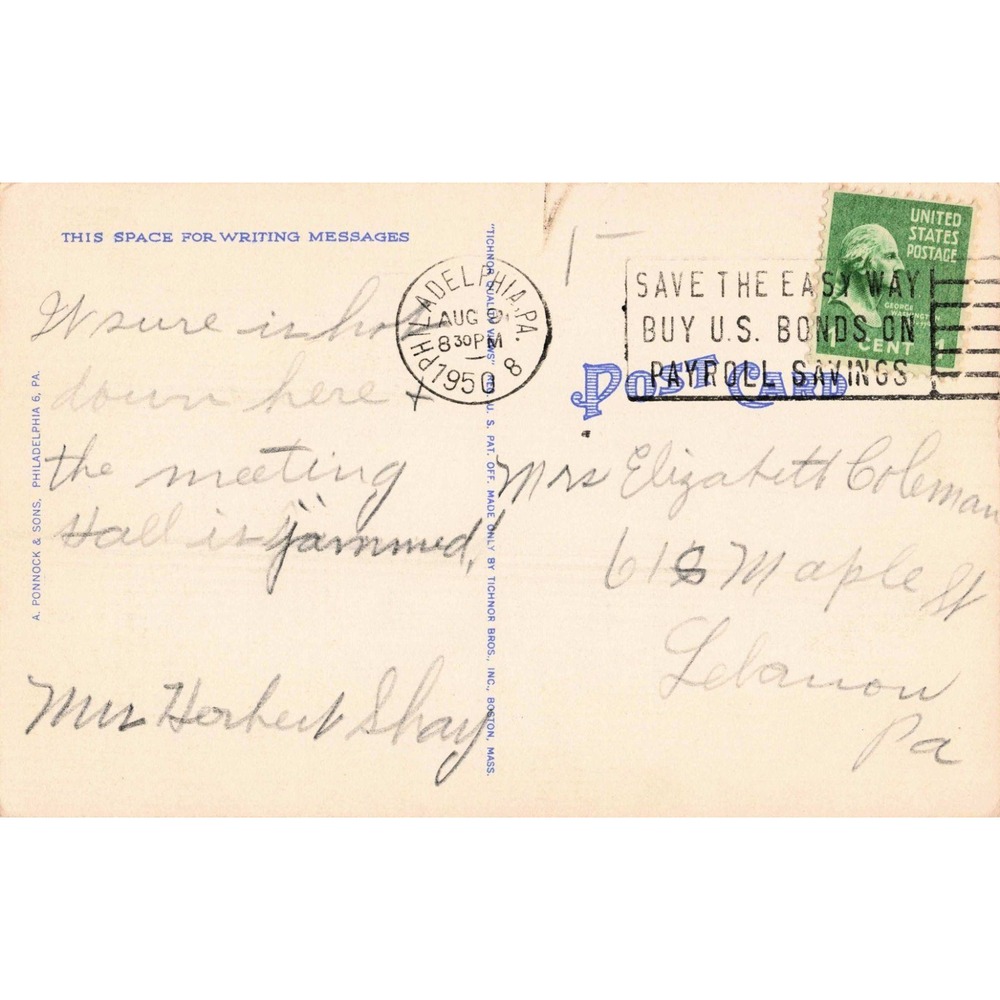 THIS SPACE FOR WRITING MESSAGES
W sure is hot
down here +
the meeting
Hall is "jammed"
Mrs Herbert Shay
A. PONNOCK & SONS, PHILADELPHIA 6, PA.
"TICHNOR QUALITY VIEWS" REG. U. S. PAT. OFF. MADE ONLY BY TICHNOR BROS., INC., BOSTON, MASS.
PHILADELPHIA, PA.
AUG
8 30 PM
1950
8
1-
SAVE THE EASY WAY
BUY U.S. BONDS ON
PAYROLL SAVINGS
UNITED
STATES
POSTAGE
GEORGE
WASHINGTON
1 CENT 1
POST CARD
Mrs Elizabeth Coleman
618 Maple St
Lebanon
Pa